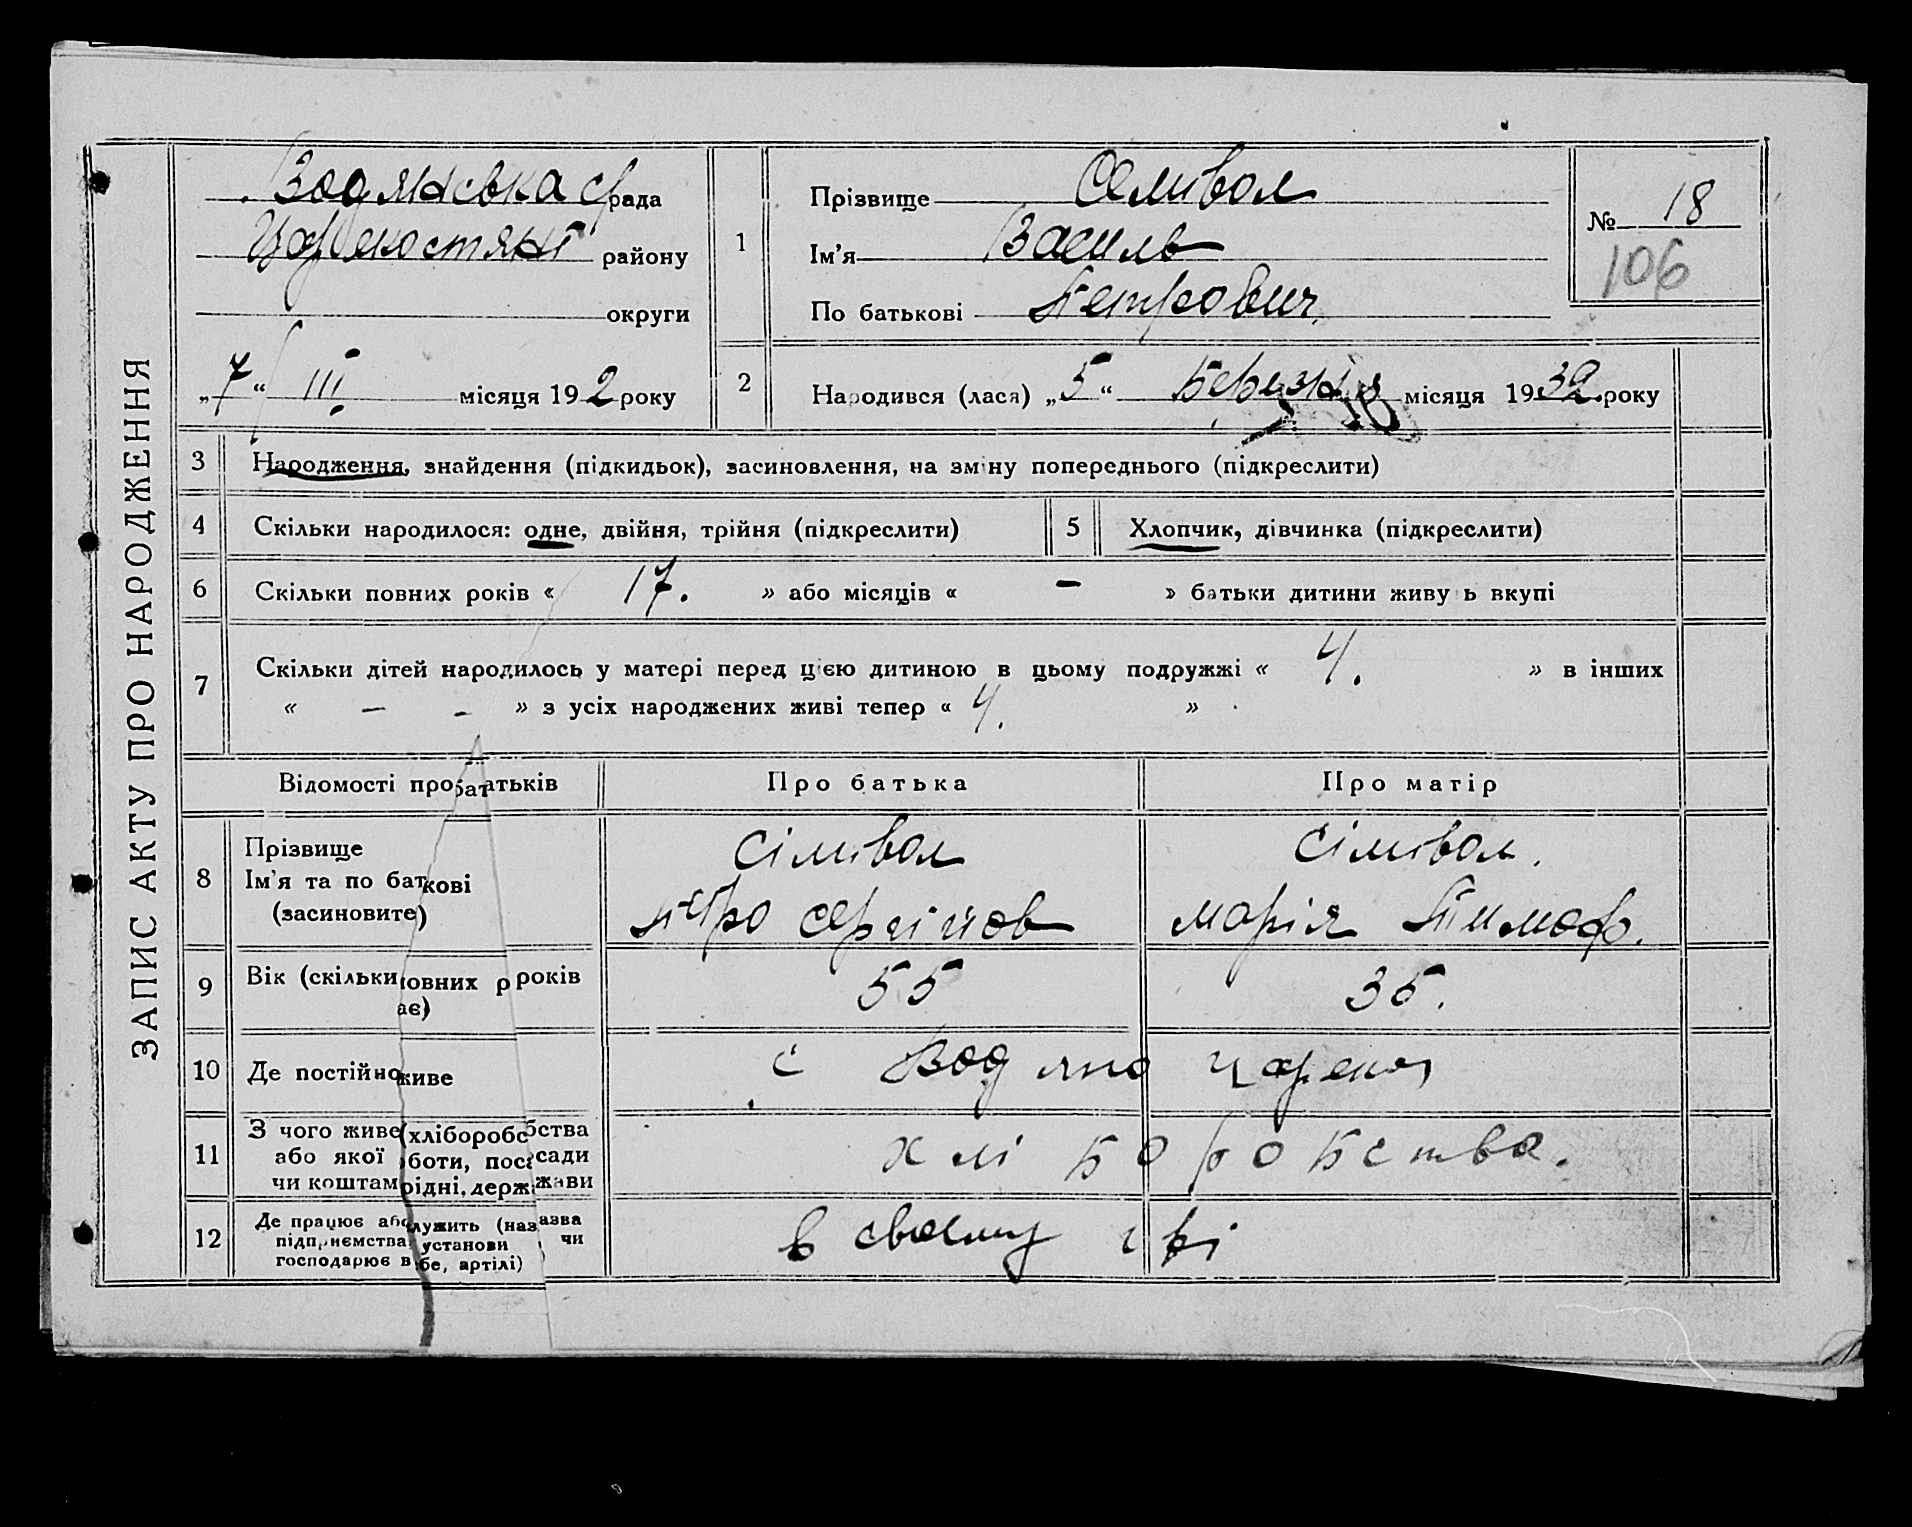 ЗАПИС АКТУ ПРО НАРОДЖЕННЯ
Водянська с/рада
району
округи
„7“ III місяця 192 року
1
Прізвище Селивол
Ім'я Василь
По батькові Петрович
№ 18
106
2
Народився (лася) „5“ Березня місяця 1932 року
3 Народження, знайдення (підкидьок), засиновлення, на зміну попереднього (підкреслити)
4 Скільки народилося: одне, двійня, трійня (підкреслити)
5 Хлопчик, дівчинка (підкреслити)
6 Скільки повних років « 17. » або місяців « – » батьки дитини живу ь вкупі
7 Скільки дітей народилось у матері перед цією дитиною в цьому подружжі « 4. » в інших
« – - » з усіх народжених живі тепер « 4. »
Відомості про батьків
Про батька
Про матір
8 Прізвище
Ім'я та по баткові
(засиновите)
Сіливол
Петро Сергійов
Сіливол.
Марія Тимоф.
9 Вік (скільки повних років
ає)
55
35.
10 Де постійно живе
с Водяно
11 З чого живе (хліборобства
або якої роботи, посади
чи коштам рідні, держави
хліборобства.
12 Де працює або служить (назва
підприємства установи чи
господарює в себе, артілі)
в своєму